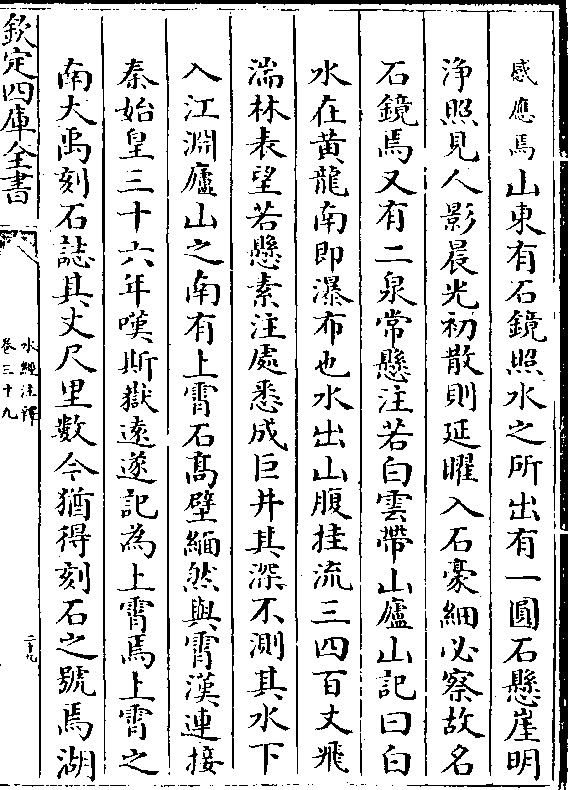 感應焉山東有石鏡照水之所出有一圓石懸崖明
浄照見人影晨光初散則延曜入石豪細必察故名
石鏡焉又有二泉常懸注若白雲帶山廬山記曰白
水在黄龍南即瀑布也水出山腹挂流三四百丈飛
湍林表望若懸素注處悉成巨井其深不測其水下
入江淵廬山之南有上霄石高壁緬然與霄漢連接
秦始皇三十六年嘆斯嶽遠遂記為上霄焉上霄之
南大禹刻石誌其丈尺里數今猶得刻石之號焉湖
欽定四庫全書
水經注釋
卷三十九
二十九